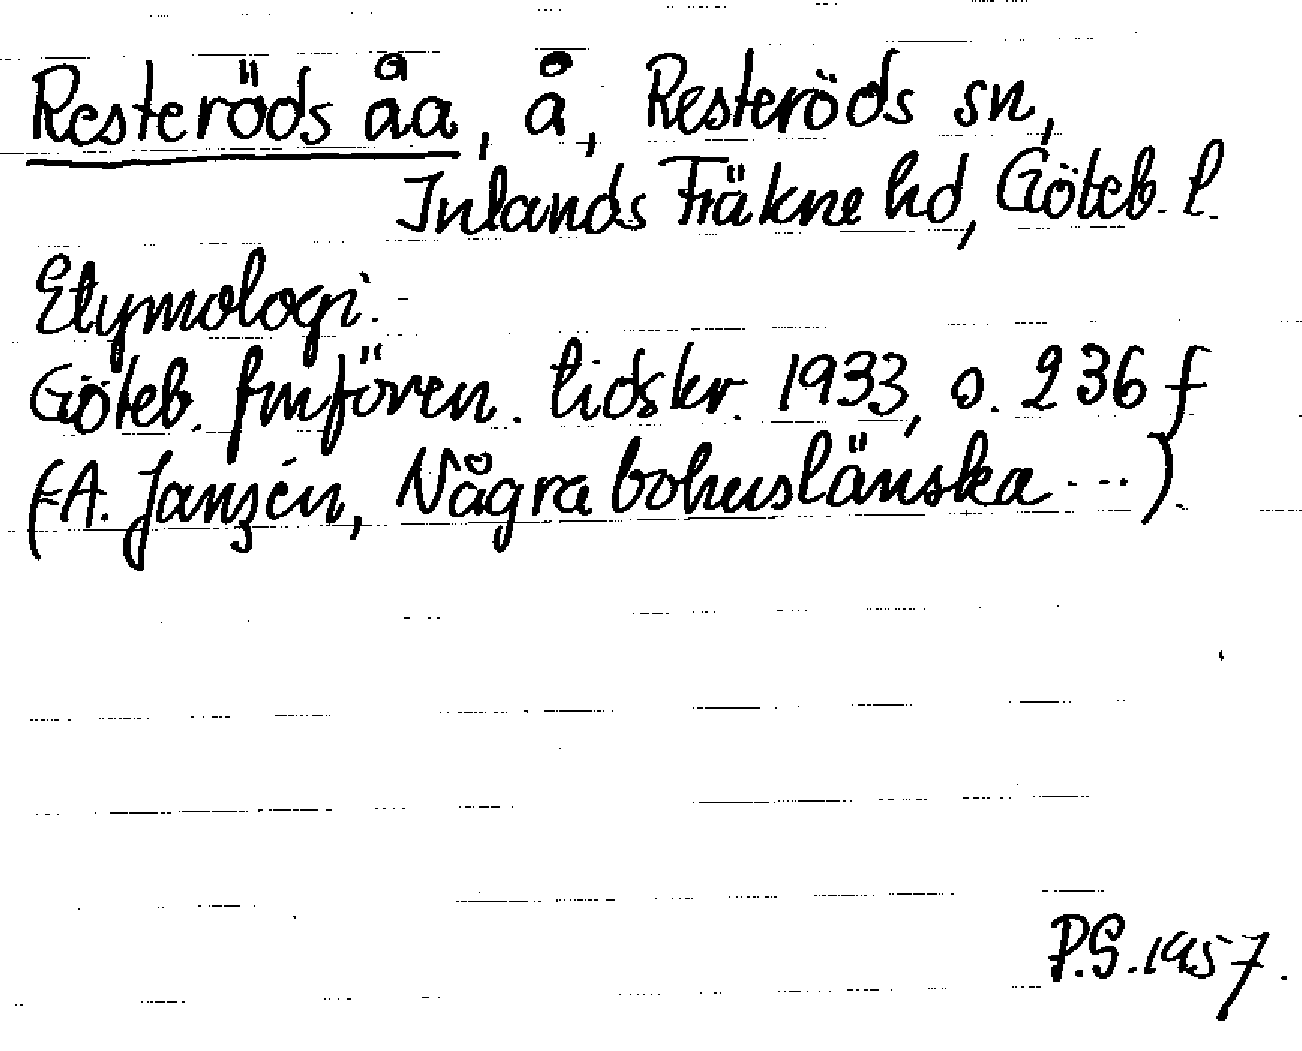 Resteröds åa, å, Resteröds sn,
Inlands Fräkne hd, Göteb. l.
Etymologi:
Göteb. fmfören. tidskr. 1933, s. 236 f
(A. Janzén, Några bohuslänska ...).
P.S. 1957.